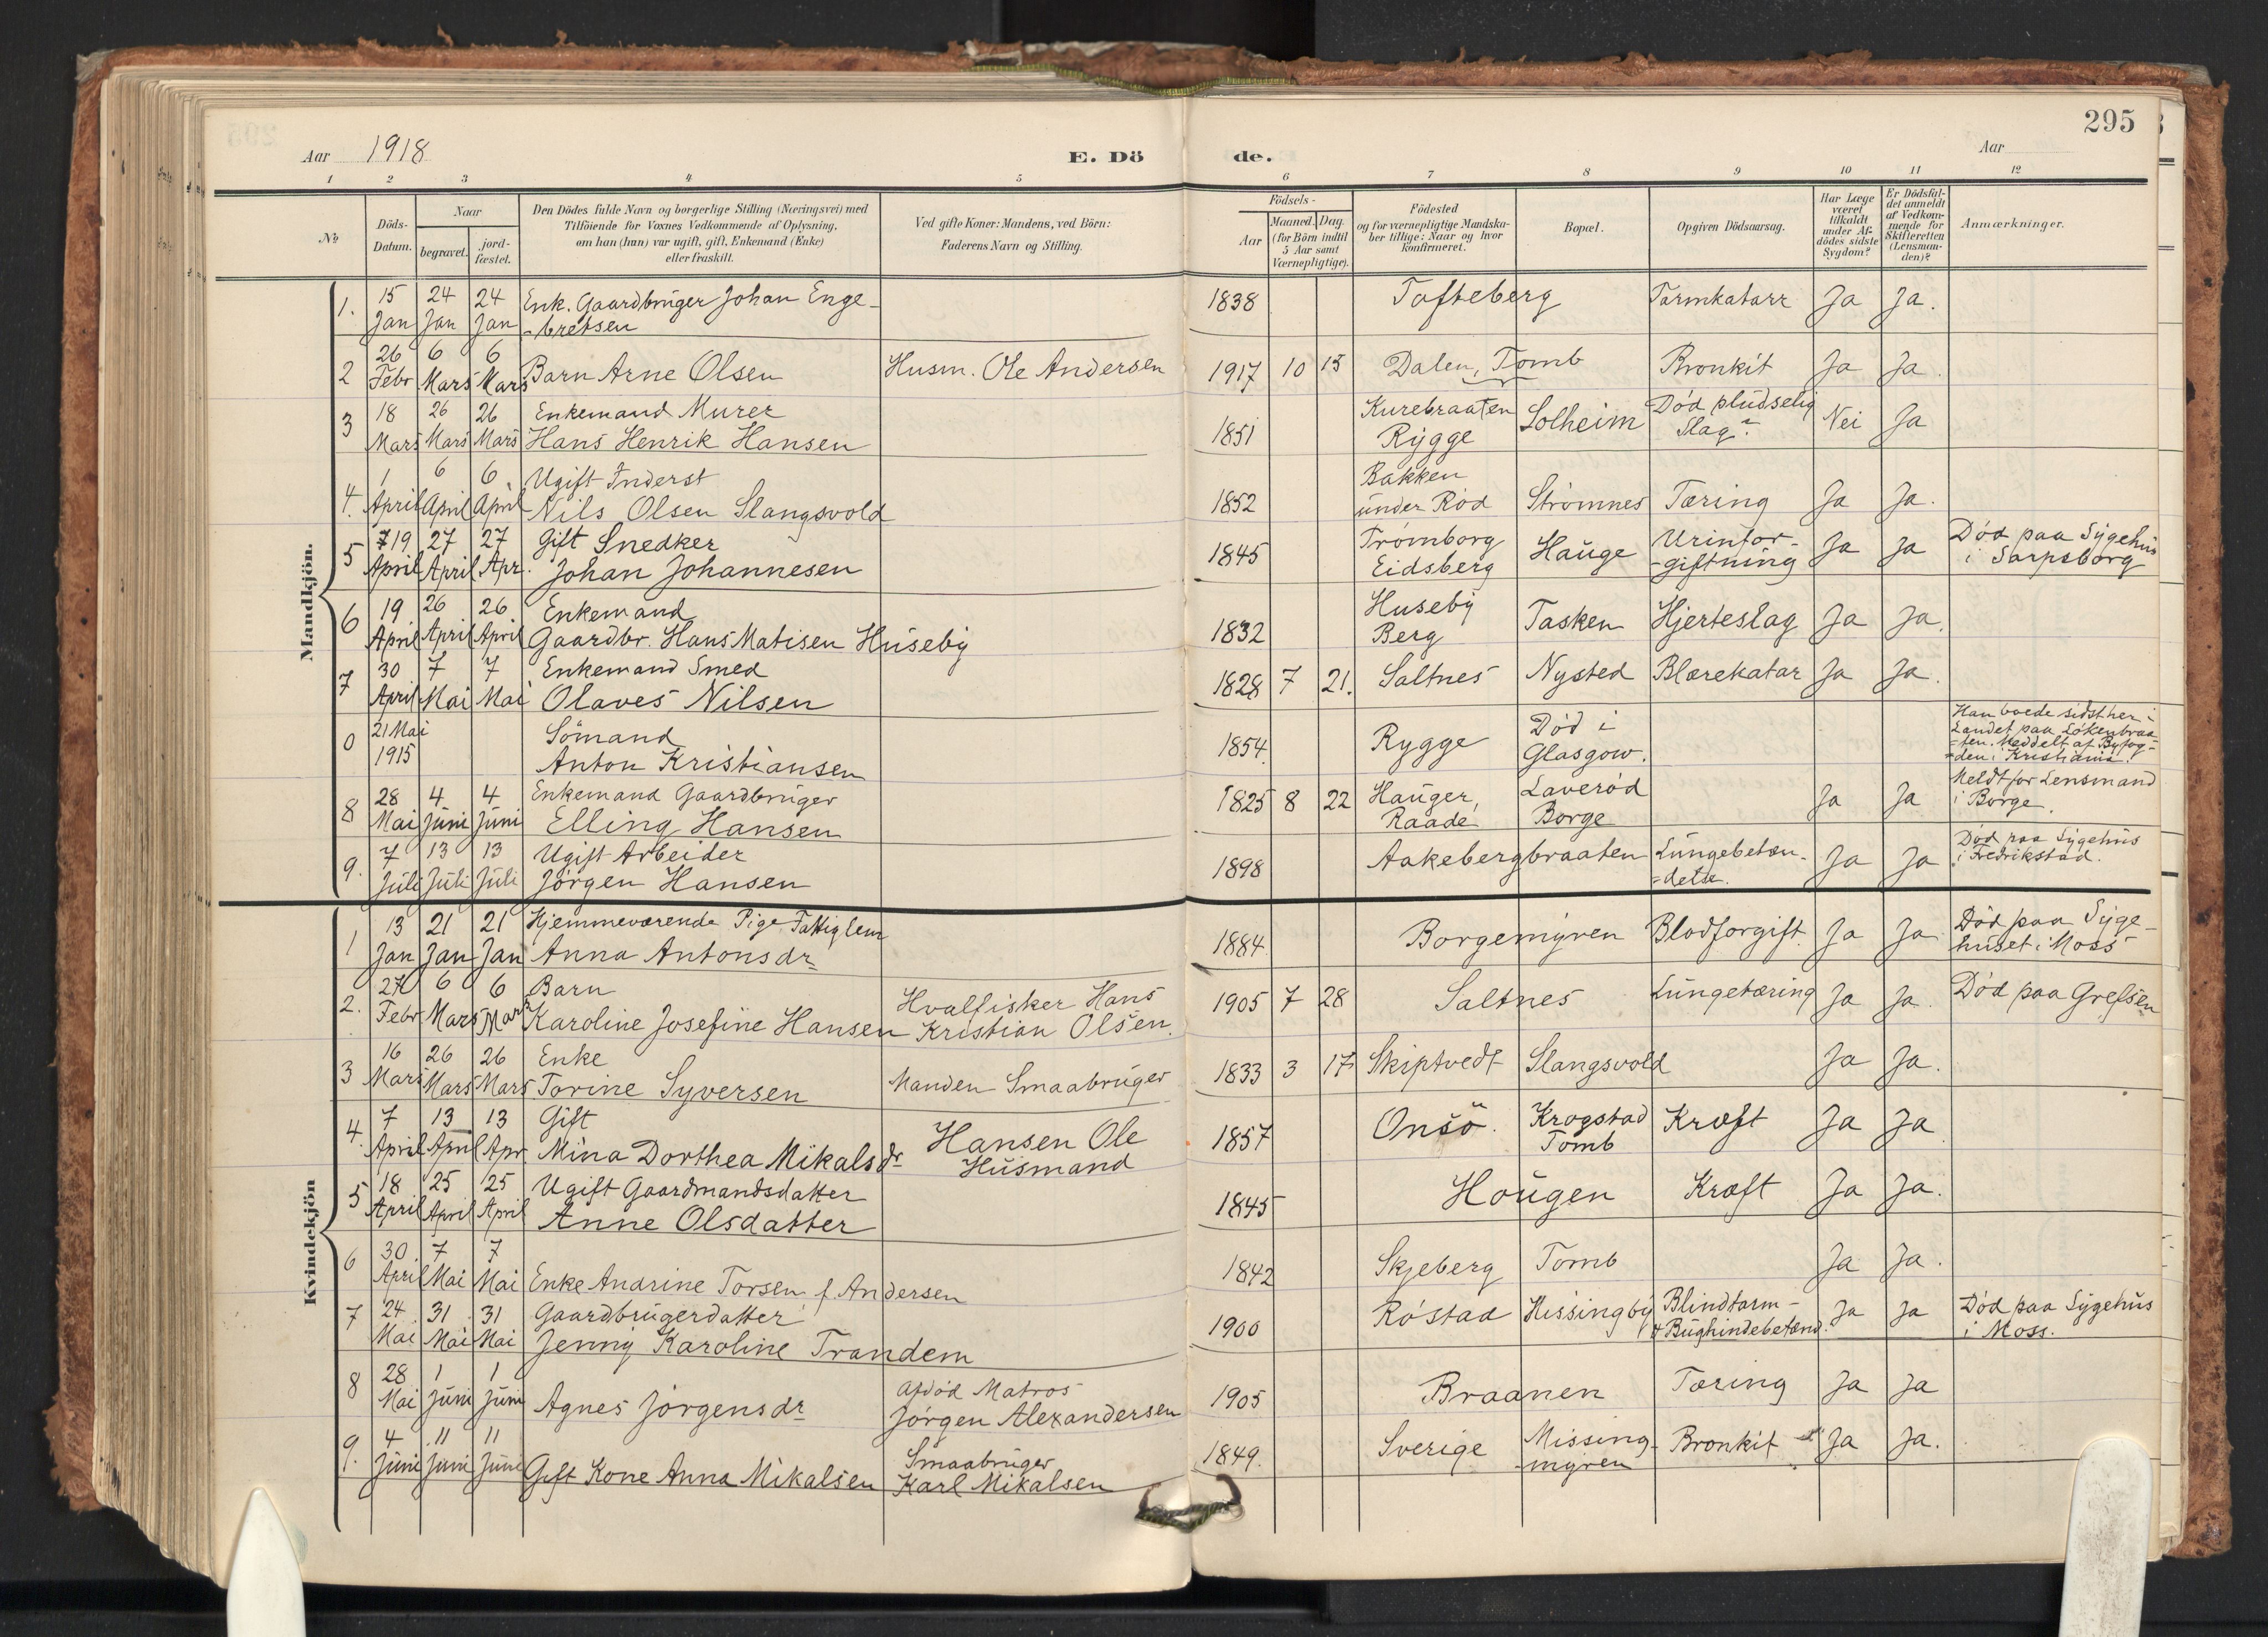 295
Aar 1918
E. Dö
de.
Aar
1 2 3 4 5 6 7 8 9 10 11 12
No
Döds-
Datum.
Naar
begravet.
jord-
fæstet.
Den Dödes fulde Navn og borgerlige Stilling (Næringsvei) med
Tilföiende for Voxnes Vedkommende af Oplysning,
om han (hun) var ugift, gift, Enkemand (Enke)
eller fraskilt.
Ved gifte Koner: Mandens, ved Börn:
Faderens Navn og Stilling.
Födsels-
Aar
Maaned. Dag.
(for Börn indtil
5 Aar samt
Værnepligtige).
Födested
og for værnepligtige Mandska-
ber tillige: Naar og hvor
konfirmeret.
Bopæl.
Opgiven Dödsaarsag.
Har Læge
været
tilkaldt
under Af-
dödes sidste
Sygdom?
Er Dödsfal-
det anmeldt
af Vedkom-
mende for
Skifteretten
(Lensman-
den)?
Anmærkninger.
Mandkjön.
1. 15 Jan 24 Jan 24 Jan Enk. Gaardbruger Johan Enge-
-bretsen 1838 Tofteberg Tarmkatarr Ja Ja.
2 26 Febr 6 Mars 6 Mars Barn Arne Olsen Husm. Ole Andersen 1917 10 13 Dalen, Tomb Bronkit Ja Ja.
3 18 Mars 26 Mars 26 Mars Enkemand Murer
Hans Henrik Hansen 1851 Kurebraaten
Rygge Solheim Död pludselig
Slag? Nei Ja
4. 1 April 6 April 6 April Ugift Inderst
Nils Olsen Slangsvold 1852 Bakken
under Röd Strömnes Tæring Ja Ja.
5 19 April 27 April 27 Apr. Gift Snedker
Johan Johannesen 1845 Trömborg
Eidsberg Hauge Urinfor-
-giftning Ja Ja Död paa Sygehus
i Sarpsborg
6 19 April 26 April 26 April Enkemand
Gaardbr. Hans Matisen Huseby 1832 Huseby
Berg Tasken Hjerteslag Ja Ja.
7 30 April 7 Mai 7 Mai Enkemand Smed
Olaves Nilsen 1828 7 21. Saltnes Nysted Blærekatar Ja Ja.
0 21 Mai
1915 Sömand
Anton Kristiansen 1854 Rygge Död i
Glasgow. Han boede sidst her i
Landet paa Lökenbraa-
=ten. Meddelt af Byfog-
=den i Kristiania.
8 28 Mai 4 Juni 4 Juni Enkemand Gaardbruger
Elling Hansen 1825 8 22 Hauger,
Raade Laveröd
Borge Ja Ja Meldt for Lensmand
i Borge.
9. 7 Juli 13 Juli 13 Juli Ugift Arbeider
Jörgen Hansen 1898 Aakebergbraaten Lungebetæn-
=delse. Ja Ja Död paa Sygehus
i Fredrikstad.
Kvindekjön
1 13 Jan 21 Jan 21 Jan Hjemmeværende Pige. Fattiglem
Anna Antonsdr 1884 Borgemyren Blodforgift. Ja Ja Död paa Syge-
huset i Moss
2. Febr 6 Mars 6 Mars Barn
Karoline Josefine Hansen Hvalfisker Hans
Kristian Olsen. 1905 7 28 Saltnes Lungetæring Ja Ja. Död paa Grefsen
3 16 Mars 26 Mars 26 Mars Enke
Torine Syversen Manden Smaabruger 1833 3 17 Skiptvedt Slangsvold Ja Ja.
4. 7 April 13 April 13 Apr Gift
Mina Dorthea Mikalsdr Hansen Ole
Husmand 1857 Onsö. Krogstad
Tomb Kræft Ja Ja
5 18 April 25 April 25 April Ugift Gaardmandsdatter
Anne Olsdatter 1845 Hougen Kræft Ja Ja.
6 30 April 7 Mai 7 Mai Enke Andrine Torsen f. Andersen 1842 Skjeberg Tomb Ja Ja.
7 24 Mai 31 Mai 31 Mai Gaardbrugerdatter
Jenny Karoline Trandem 1900 Röstad Missingby Blindtarm-
+ Bughindebetænd. Ja Ja Död paa Sygehus
i Moss.
8 28 Mai 1 Juni 1 Juni Agnes Jörgensdr Afdöd Matros
Jörgen Alexandersen 1905 Braanen Tæring Ja Ja
9. 4 Juni 11 Juni 11 Juni Gift Kone Anna Mikalsen Smaabruger
Karl Mikalsen 1849. Sverige Missing-
myren Bronkit Ja Ja.